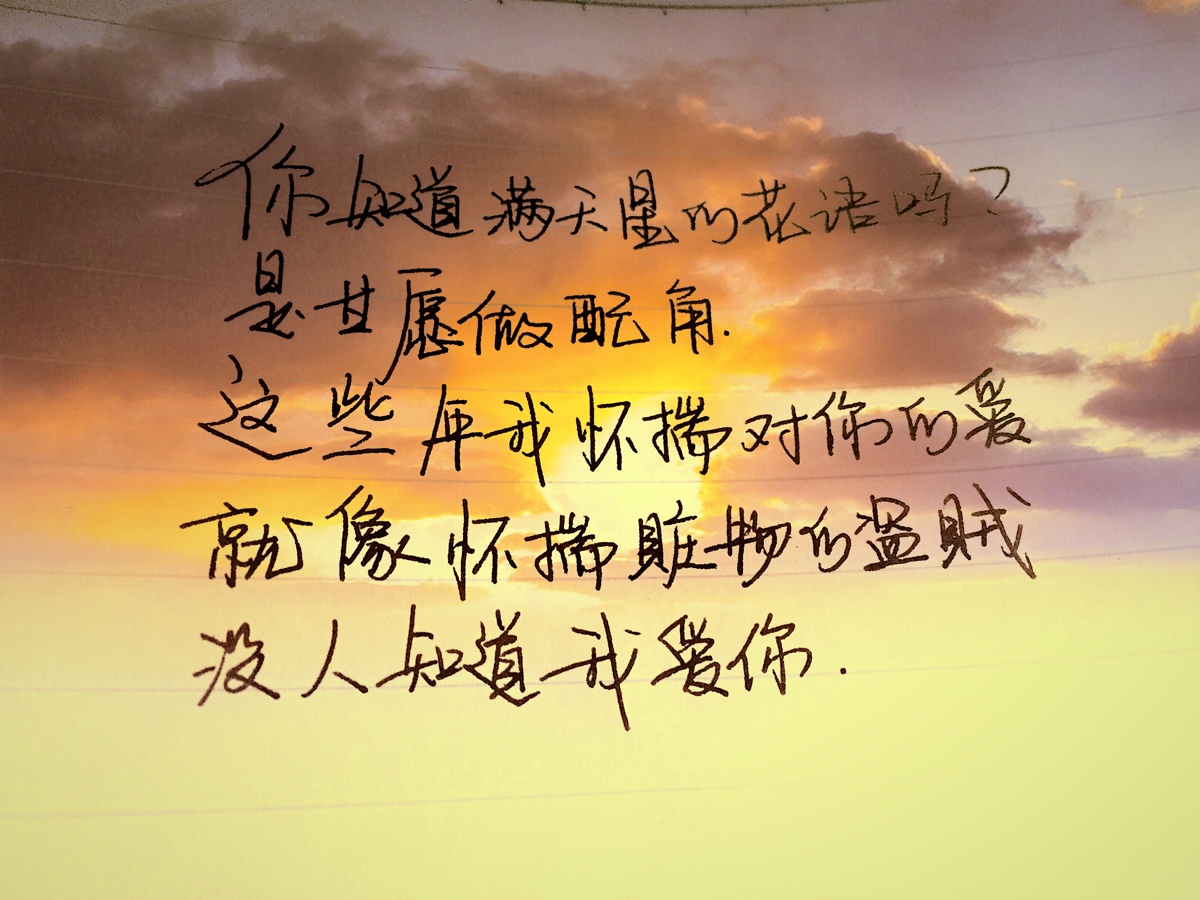 你知道满天星的花语吗?
是甘愿做配角.
这些年我怀揣对你的爱
就像怀揣赃物的盗贼
没人知道我爱你.